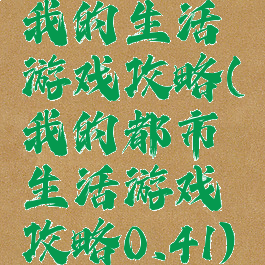 我的生活
游戏攻略(
我的都市
生活游戏
攻略0.41)